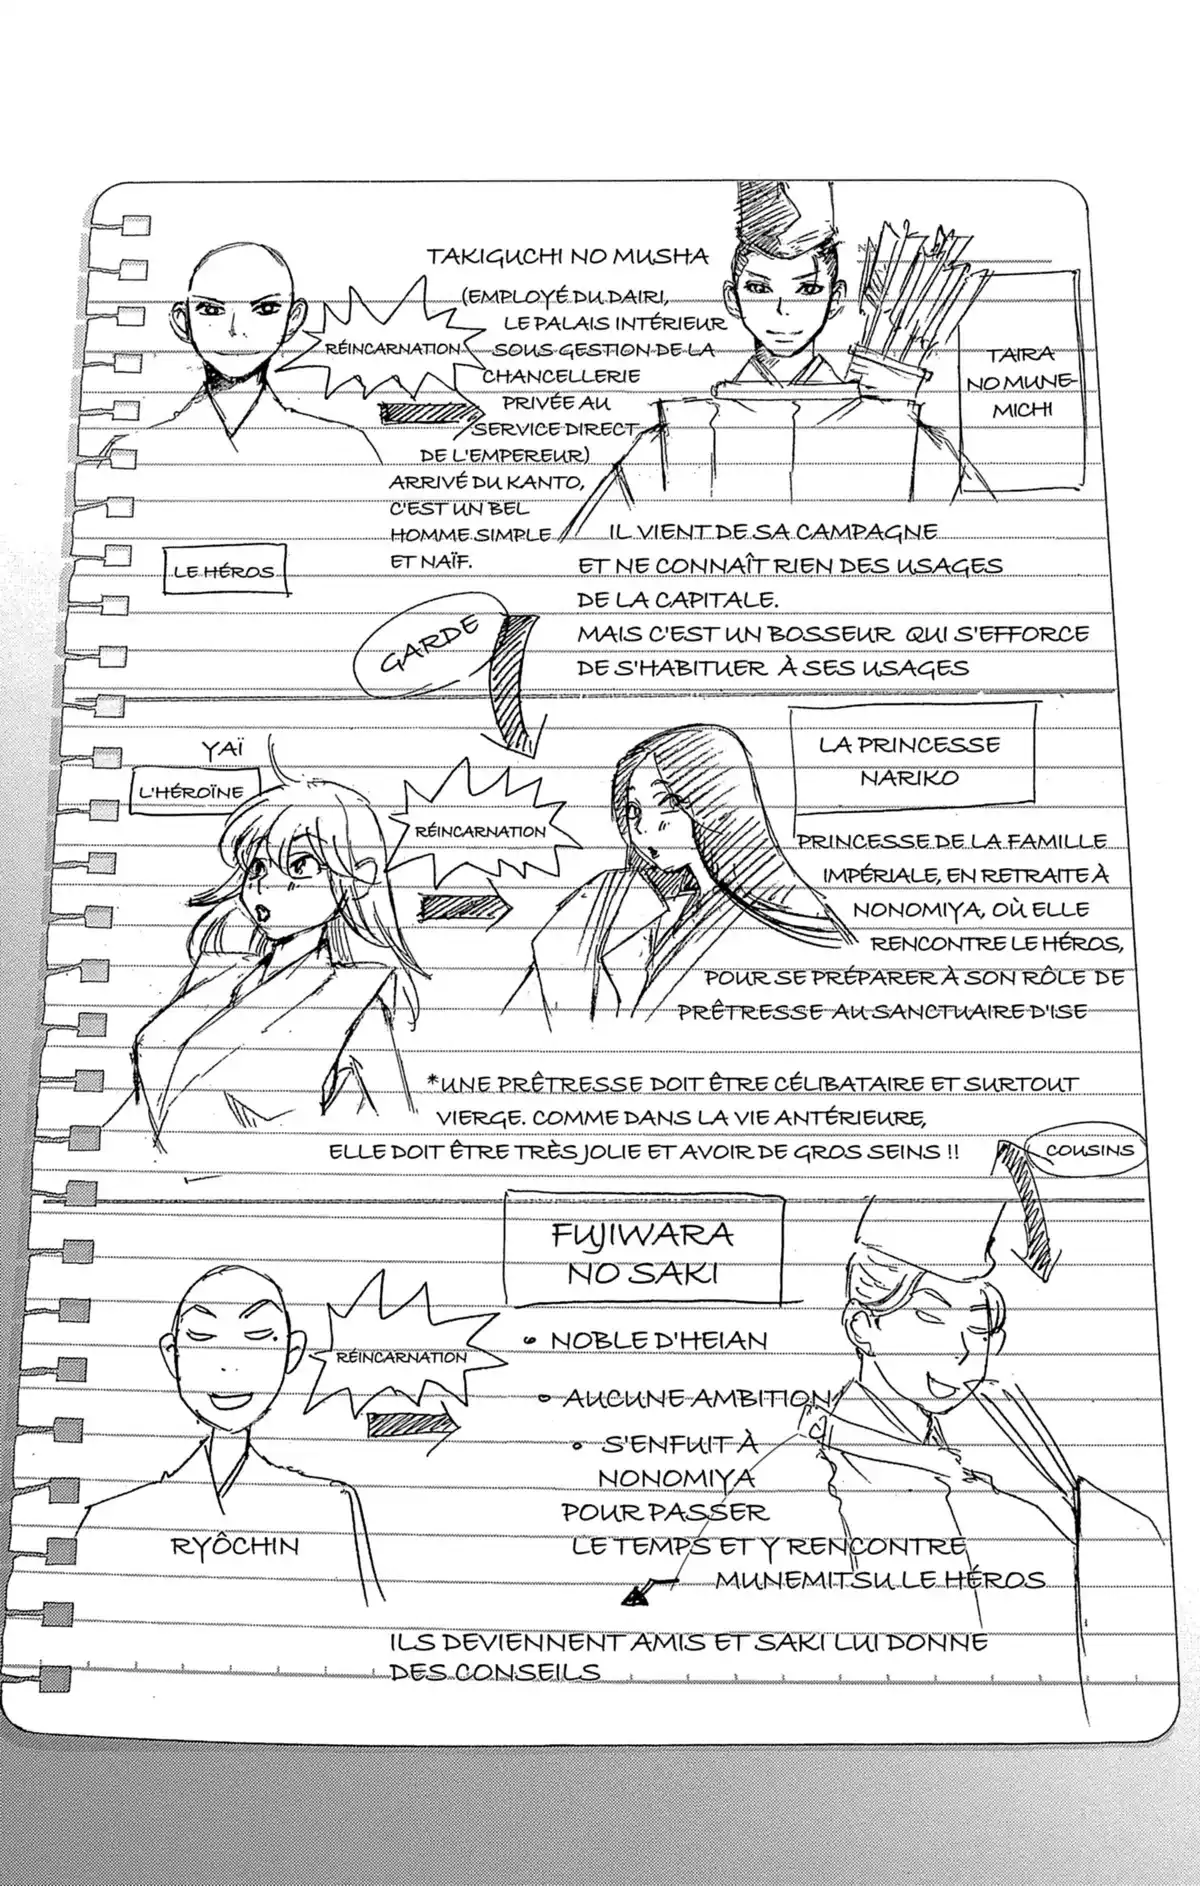 TAKIGUCHI NO MUSHA
(EMPLOYÉ DU DAIRI,
LE PALAIS INTÉRIEUR
RÉINCARNATION
SOUS GESTION DE LA
CHANCELLERIE
PRIVÉE AU
SERVICE DIRECT
DE L'EMPEREUR)
ARRIVÉ DU KANTO,
C'EST UN BEL
HOMME SIMPLE
ET NAÏF.
TAIRA
NO MUNE-
MICHI
LE HÉROS
IL VIENT DE SA CAMPAGNE
ET NE CONNAÎT RIEN DES USAGES
DE LA CAPITALE.
MAIS C'EST UN BOSSEUR QUI S'EFFORCE
DE S'HABITUER À SES USAGES
GARDE
YAÏ
L'HÉROÏNE
RÉINCARNATION
LA PRINCESSE
NARIKO
PRINCESSE DE LA FAMILLE
IMPÉRIALE, EN RETRAITE À
NONOMIYA, OÙ ELLE
RENCONTRE LE HÉROS,
POUR SE PRÉPARER À SON RÔLE DE
PRÊTRESSE AU SANCTUAIRE D'ISE
*UNE PRÊTRESSE DOIT ÊTRE CÉLIBATAIRE ET SURTOUT
VIERGE. COMME DANS LA VIE ANTÉRIEURE,
ELLE DOIT ÊTRE TRÈS JOLIE ET AVOIR DE GROS SEINS !!
COUSINS
FUJIWARA
NO SAKI
RÉINCARNATION
• NOBLE D'HEIAN
• AUCUNE AMBITION
• S'ENFUIT À
NONOMIYA
POUR PASSER
LE TEMPS ET Y RENCONTRE
MUNEMITSU LE HÉROS
RYÔCHIN
ILS DEVIENNENT AMIS ET SAKI LUI DONNE
DES CONSEILS